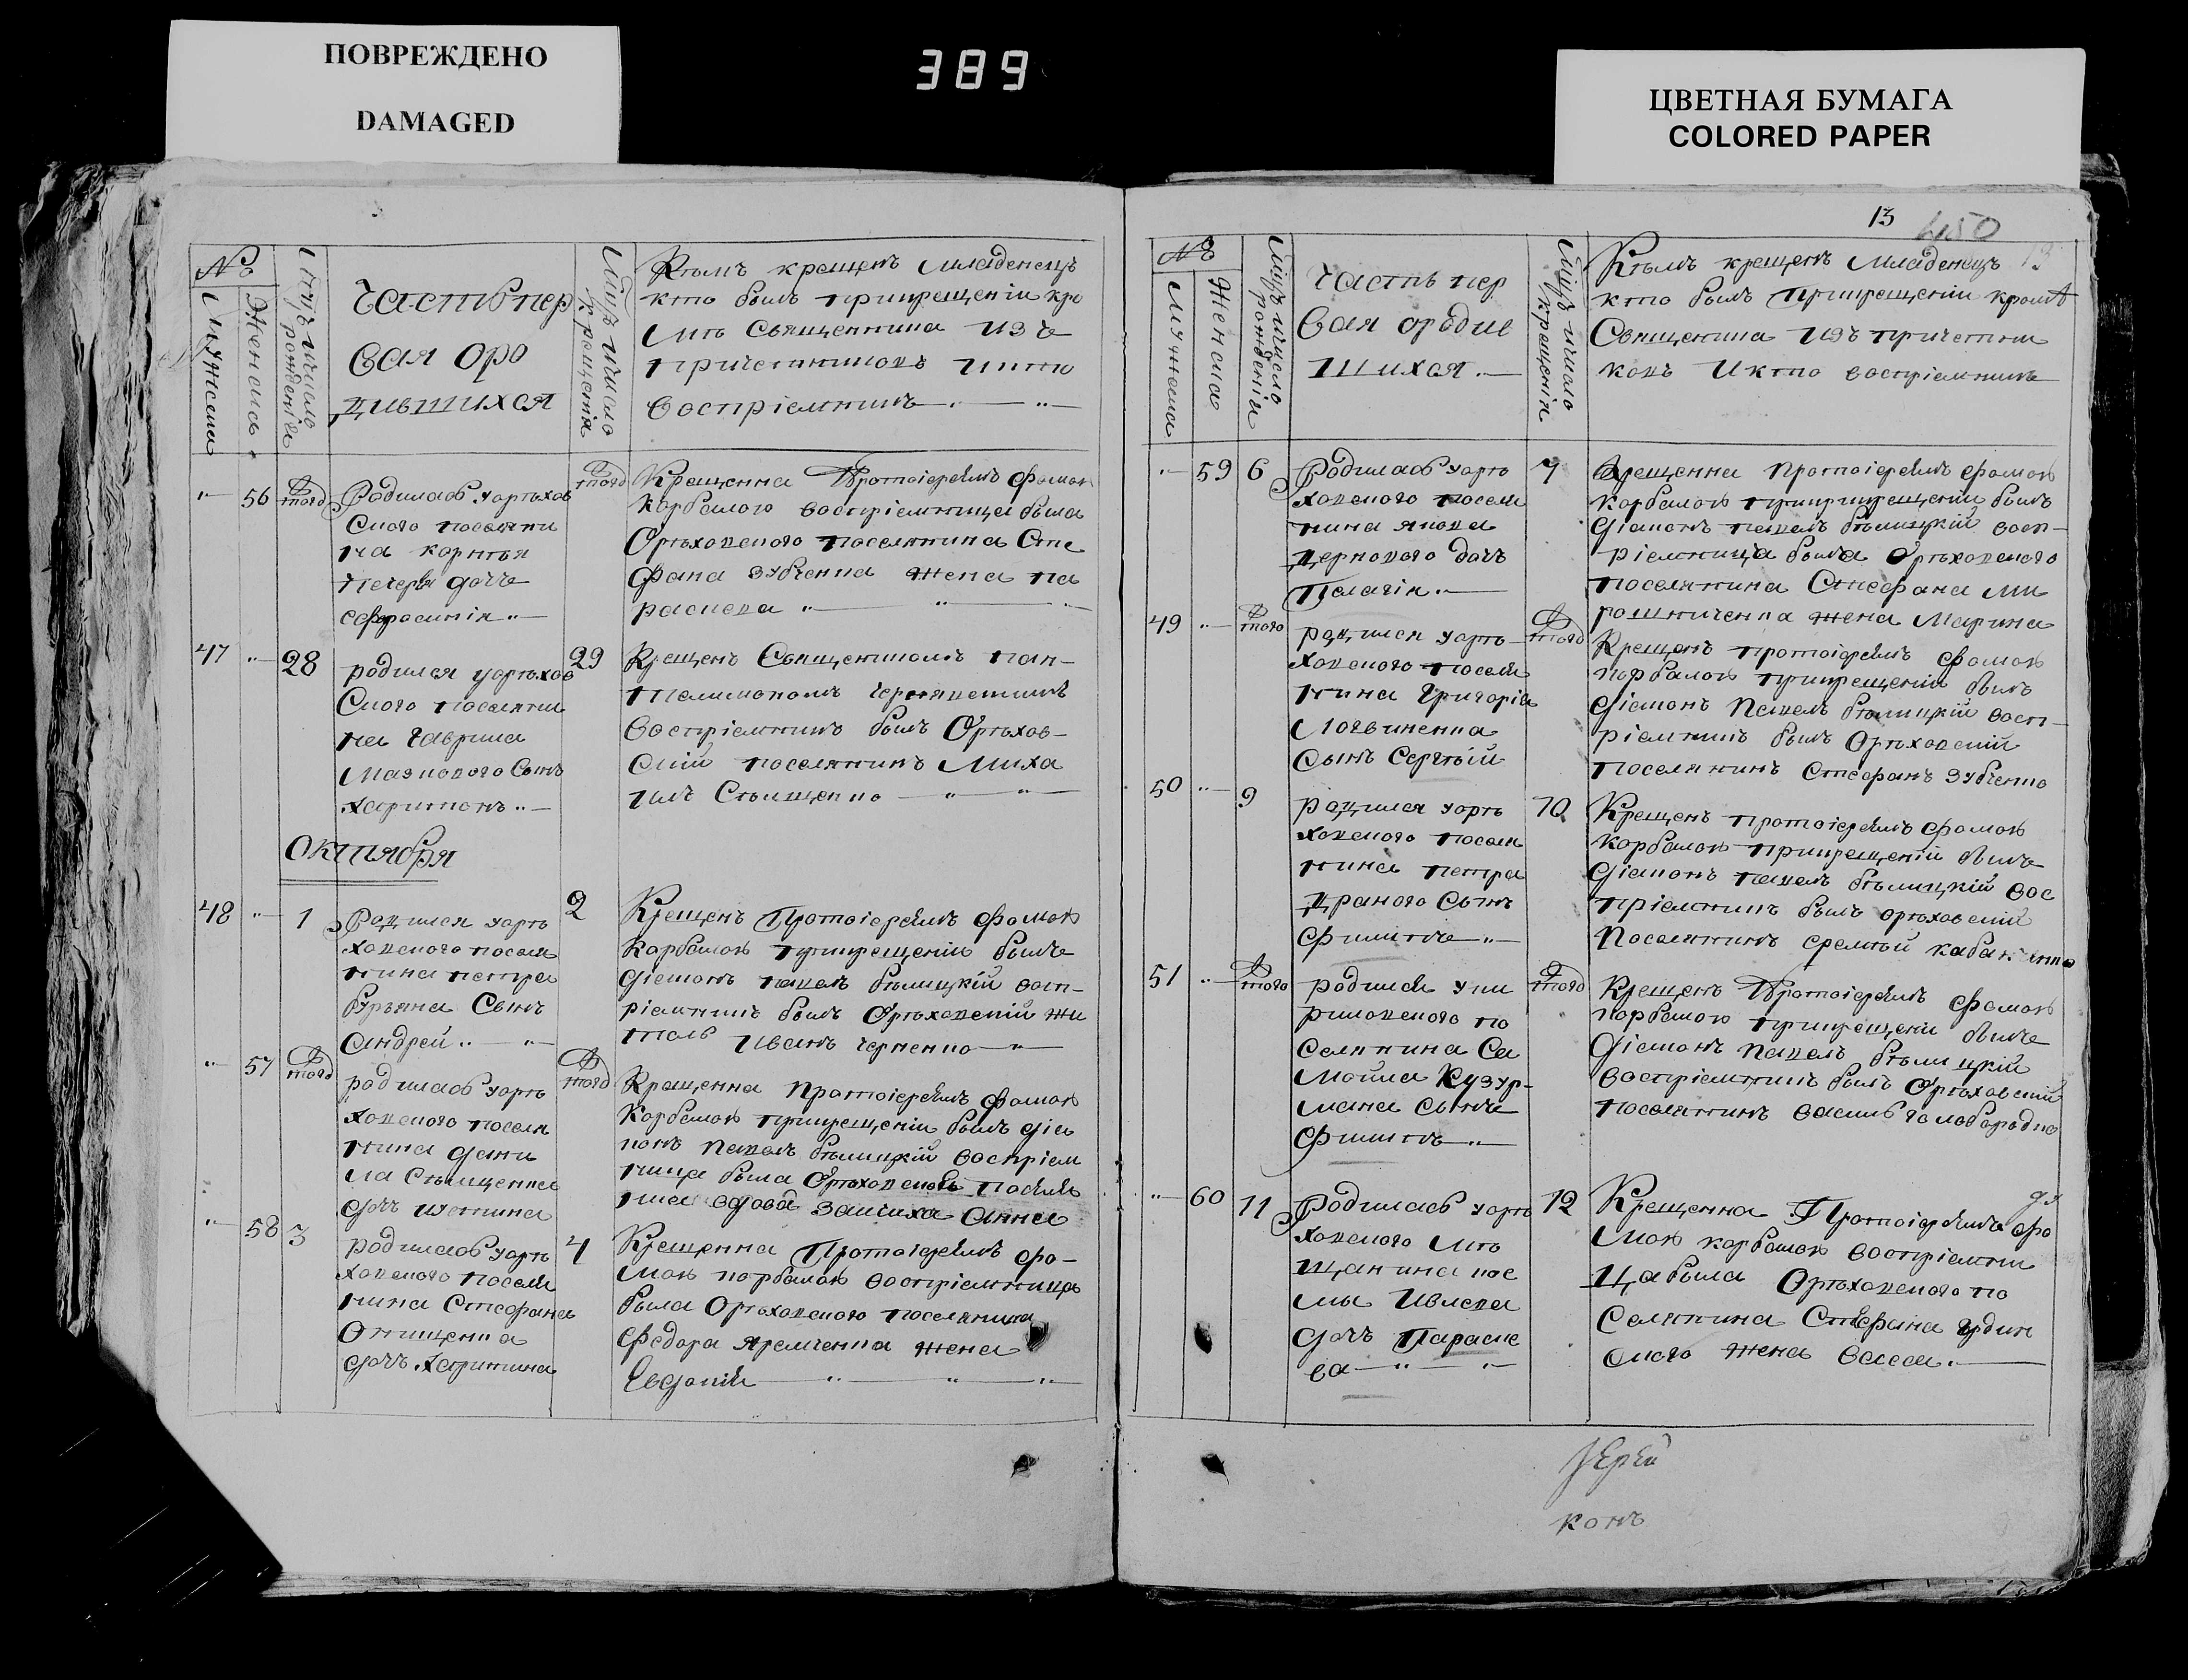 ПОВРЕЖДЕНО
DAMAGED
389
ЦВЕТНАЯ БУМАГА
COLORED PAPER
№
Мужеска
Женска
рожденія
Часть пер
вая оро
дившихся
крещенія
Кѣмъ крещенъ младенецъ
кто былъ припрещеніи кро
мѣ Священника изъ
причетниковъ
Воспріемникъ
56
того
Родилась уорѣхов
ского поселяни
на корнѣя
дочь
ефросинія
того
Крещенна Протоіереемъ Фомою
Карбамою воспріемница была
Орѣховского поселянина Сте
фана Зубченка жена па
раскева
47
28
родился уорѣхов
ского поселяни
на Гаврила
Мазнового Сынъ
харитонъ
29
Крещенъ Священникомъ пан-
телимономъ
Воспріемникъ былъ Орѣхов-
скій поселянинъ Миха
илъ Стьищенко
Октября
48
1
Родился уорѣ
ховского посели
нина петра
Бурьяна Сынъ
андрей
2
Крещенъ Протоіереемъ Фомою
Карбамою припрещеніи былъ
Діаконъ павелъ бѣлицкій восп-
ріемникъ былъ Орѣховскій жи
тель Иванъ Черненко
57
того
родилась уорѣ
ховского поселя
нина дани
ла Стьищенка
дочъ устинна
того
Крещенна Протоіереемъ Фомою
Карбамою припрещеніи былъ діа
конъ павелъ бѣлицкій воспріем
ница была Орѣховская посел
вдова анна
58
3
родилась уорѣ
ховского посели
нина Стефана
Онищенка
дочъ Харитина
4
Крещенна Протоіереемъ Фо-
мою карбамою воспріемница
была Орѣховского поселянина
Федора яремченка жена
Евдокія
13
450
№
Мужеска
Женска
рожденія
Часть пер
вая ородив
шихся
крещенія
Кѣмъ крещенъ Младенецъ
кто былъ припрещеніи кромѣ
Священика изъ причетни
ковъ и кто воспріемникъ
59
6
Родилась уорѣ
ховского посели
нина якова
Деркового дочъ
Пелагія
7
Крещенна Протоіереемъ фомою
карбамою припрещеніи былъ
діаконъ павелъ бѣлицкій восп-
ріемница была Орѣховского
поселянина Стефана Ми
рошниченка жена Марина
49
того
родился уорѣ
ховского посели
нина Григорія
Логвиненка
Сынъ Сергѣй
того
Крещенъ протоіереемъ фомою
карбамою припрещеніи былъ
діаконъ павелъ бѣлицкій восп-
ріемникъ былъ Орѣховскій
поселянинъ Стефанъ Зубченко
50
9
родился уорѣ
ховского посели
нина петра
Драного Сынъ
Филипъ
10
Крещенъ протоіереемъ фомою
карбамою припрещеніи былъ
діаконъ павелъ бѣлицкій вос
пріемникъ былъ орѣховскій
Поселянинъ еремѣй
51
того
родился уки
риловского по
селянина Са
мойла Кузур-
мана Сынъ
Филипъ
того
Крещенъ Протоіереемъ Фомою
карбамою припрещеніи былъ
Діаконъ павелъ бѣлицкій
воспріемникъ былъ Орѣховскій
поселянинъ василь голобородко
60
11
Родилась уорѣ
ховского мѣ
щанина кос
мы Ивлева
дочъ Параске
ва
12
Крещенна Протоіереемъ фо
мою карбамою воспріемни
ца была Орѣховского по
селянина Стефана
ского жена васса
Іерей
конъ